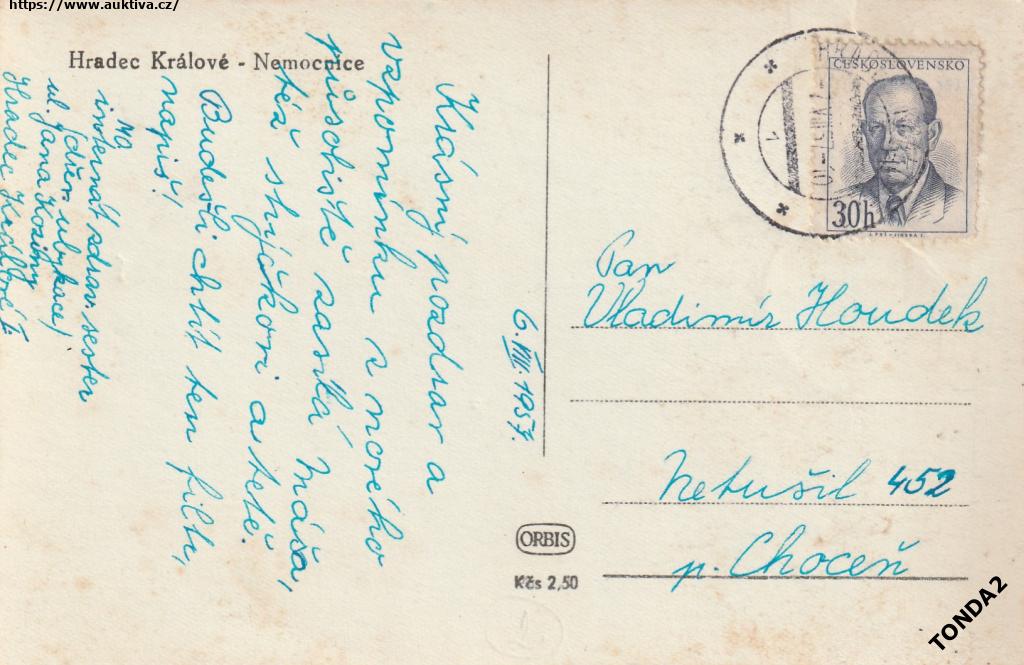 https://www.auktiva.cz/
Hradec Králové - Nemocnice
Krásný pozdrav a
vzpomínku z nového
působiště zaslá Máša,
též strýčkovi a tetě.
Budeš-li chtít ten filtr,
napiš!
internát zdrav. sester
ul. Jana Koziny
Hradec Králové I.
6. VIII. 1957.
ČESKOSLOVENSKO
30h
Pan
Vladimír Houdek
Netušil 452
p. Choceň
ORBIS
Kčs 2,50
TONDA2